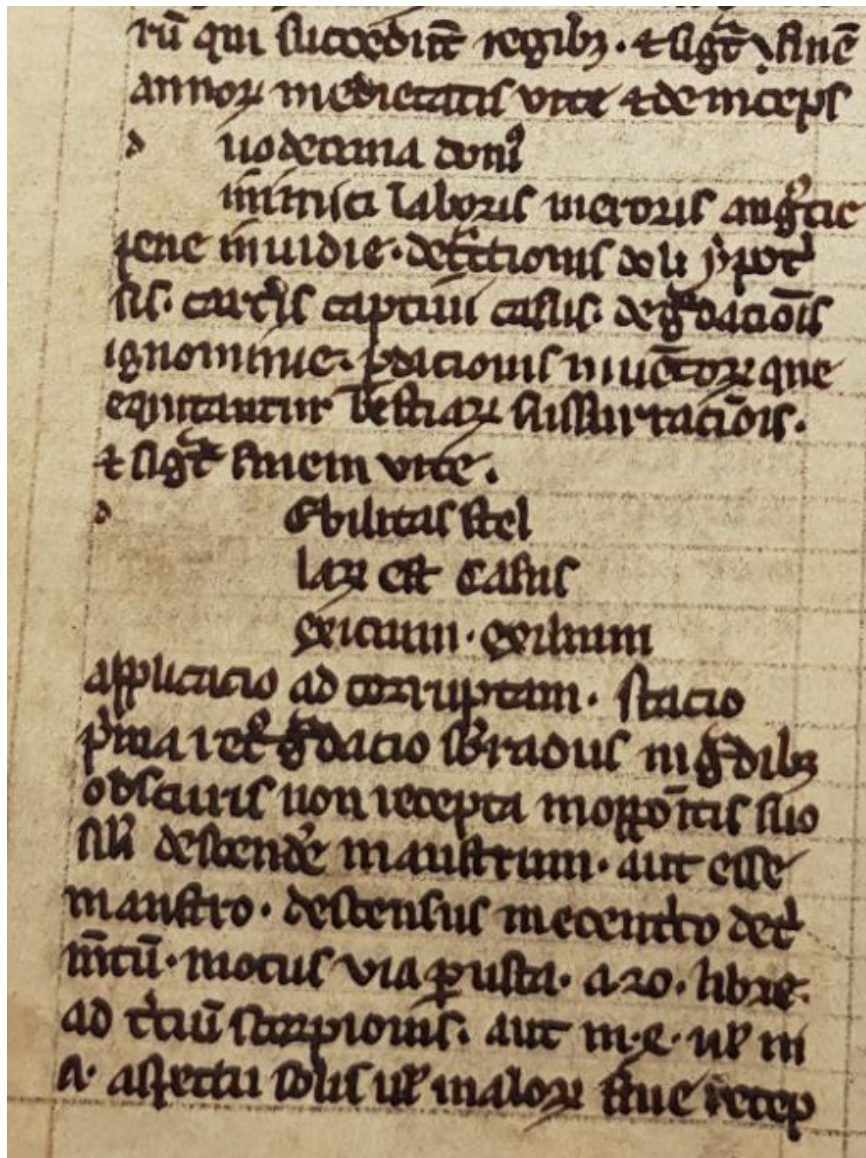 rū qui succedūt regibꝫ · ⁊ sigᵗ finē
annoꝝ medietatis vite ⁊ de inceps
d uodecima domꝰ
inimici laboris meroris angᵘstie
pene inuidie · detᵃctionis doli ypoc̄
sis · carc̄is captiui casus · degᵃdaciōis
ignominie · ꝑdacionis iuuētoꝝ que
equitantur bestiaꝝ
⁊ sigᵗ finem vite ·
d ebilitas stel
laꝝ est casus
exicium · exilium
applicacio ad corruptam · stacio
pͥma ret̄gᵃdacio sb̄ radiis in gᵃdibꝫ
obscuris non recepta in oppōitis suo
sibi descendēe in austrum · aut esse
in austro · descensus in ecentͥco det̄
in̄tū · motus via ꝑusta · a · 20 · libre ·
ad tͨciū scorpionis · aut in · e · ul̄ in
a · aspectu solis ul̄ maloꝝ sine recep